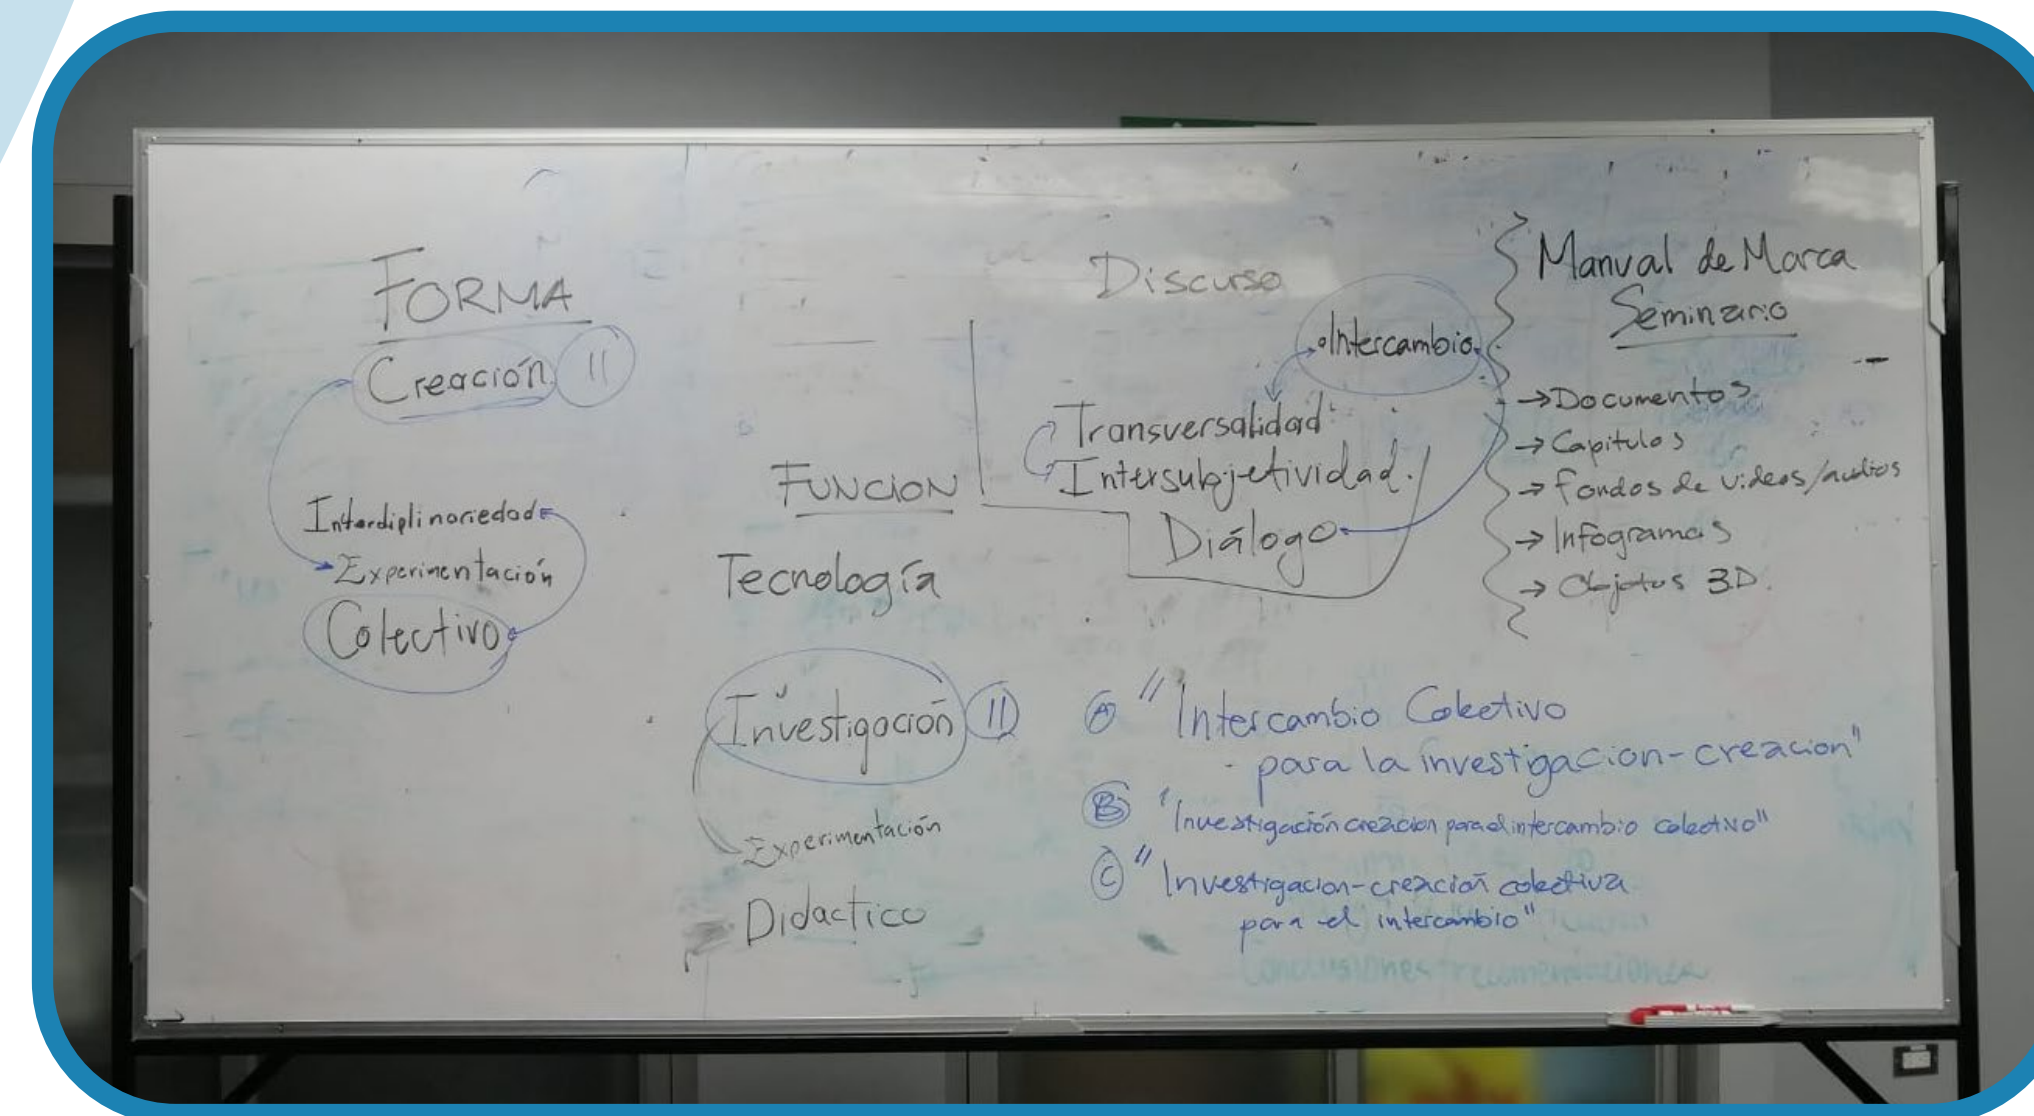 FORMA
Creación 11
Interdiplinariedad
Experimentación
Colectivo
FUNCION
Tecnología
Investigación 11
Experimentación
Didactico
Discurso
Intercambio
Transversalidad
Intersubjetividad.
Diálogo
Manual de Marca
Seminario
→ Documentos
→ Capitulos
→ Fondos de videos/audios
→ Infogramas
→ Objetos 3D.
A "Intercambio Colectivo
para la investigacion-creacion"
B "Investigación creacion para el intercambio colectivo"
C "Investigacion-creación colectiva
para el intercambio"